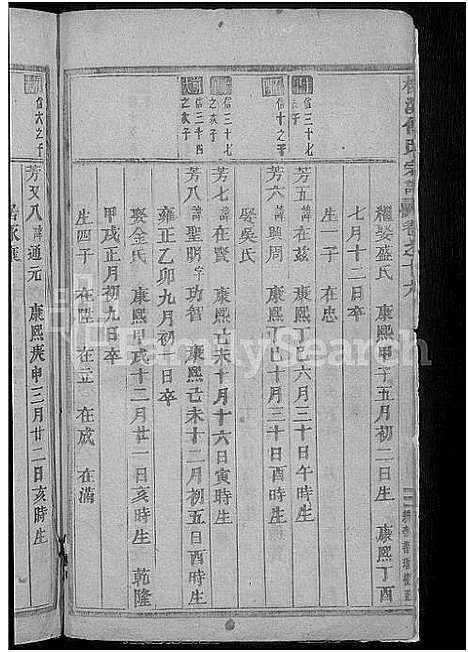 繼娶盛氏 康熙甲子五月初二日生 康熙丁酉
七月十二日卒
生一子 在忠
信三十七
芳五 諱在茲 康熙丁巳六月三十日午時生
信十之子
芳六 諱 康熙丁巳十月三十日酉時生
娶吳氏
信三十七
之次子
芳七 諱在賢 康熙己未十月十六日寅時生
信三十四
之次子
芳八 諱聖明 字功智 康熙己未十二月初五日酉時生
雍正乙卯九月初 日卒
娶金氏 康熙甲戌十二月廿一日亥時生 乾隆
甲戌正月初九日卒
生四子 在陛 在立 在成 在滿
信六之子
芳又八 諱通元 康熙庚申三月廿二日亥時生
FamilySearch